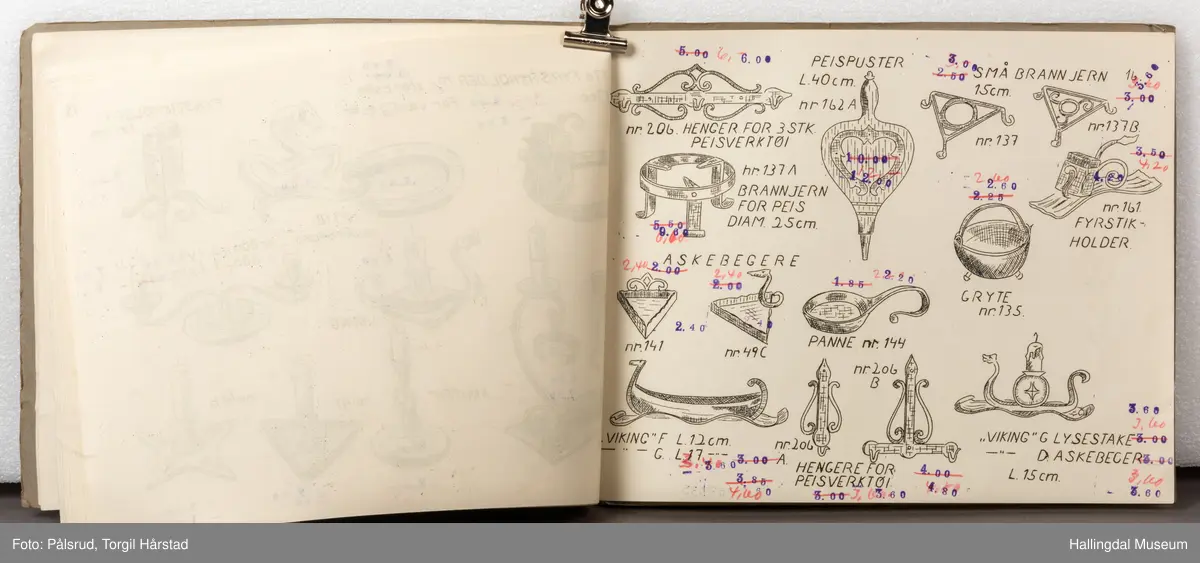 5.00 6.00
nr. 206. HENGER FOR 3 STK.
PEISVERKTØI
PEISPUSTER
L. 40 cm.
nr 162 A
10.00
12.00
3.00
2.50
SMÅ BRANNJERN
15 cm.
nr. 137
3.00
nr. 137 B.
nr. 137 A
BRANNJERN
FOR PEIS
DIAM. 25 cm.
5.50
6.60
3.50
4.20
4.20
nr. 161.
FYRSTIK-
HOLDER
2.60
2.25
GRYTE
nr. 135.
ASKEBEGERE
2,40 2.00
2.40
nr. 141
2,40
2.00
nr. 49 C
1.85 2.20
PANNE nr. 144
„VIKING" F L. 12 cm.
— " — G. L. 17 — " —
3.60 3.00
3.85
nr. 206
A
nr. 206
B
HENGERE FOR
PEISVERKTØI
3.00 3.60
4.00
4.80
3.60
3,60
„VIKING" G LYSESTAKE 3.00
— " — D. ASKEBEGER 3.00
L. 15 cm.
3,60
3.60
Foto: Pålsrud, Torgil Hårstad
Hallingdal Museum